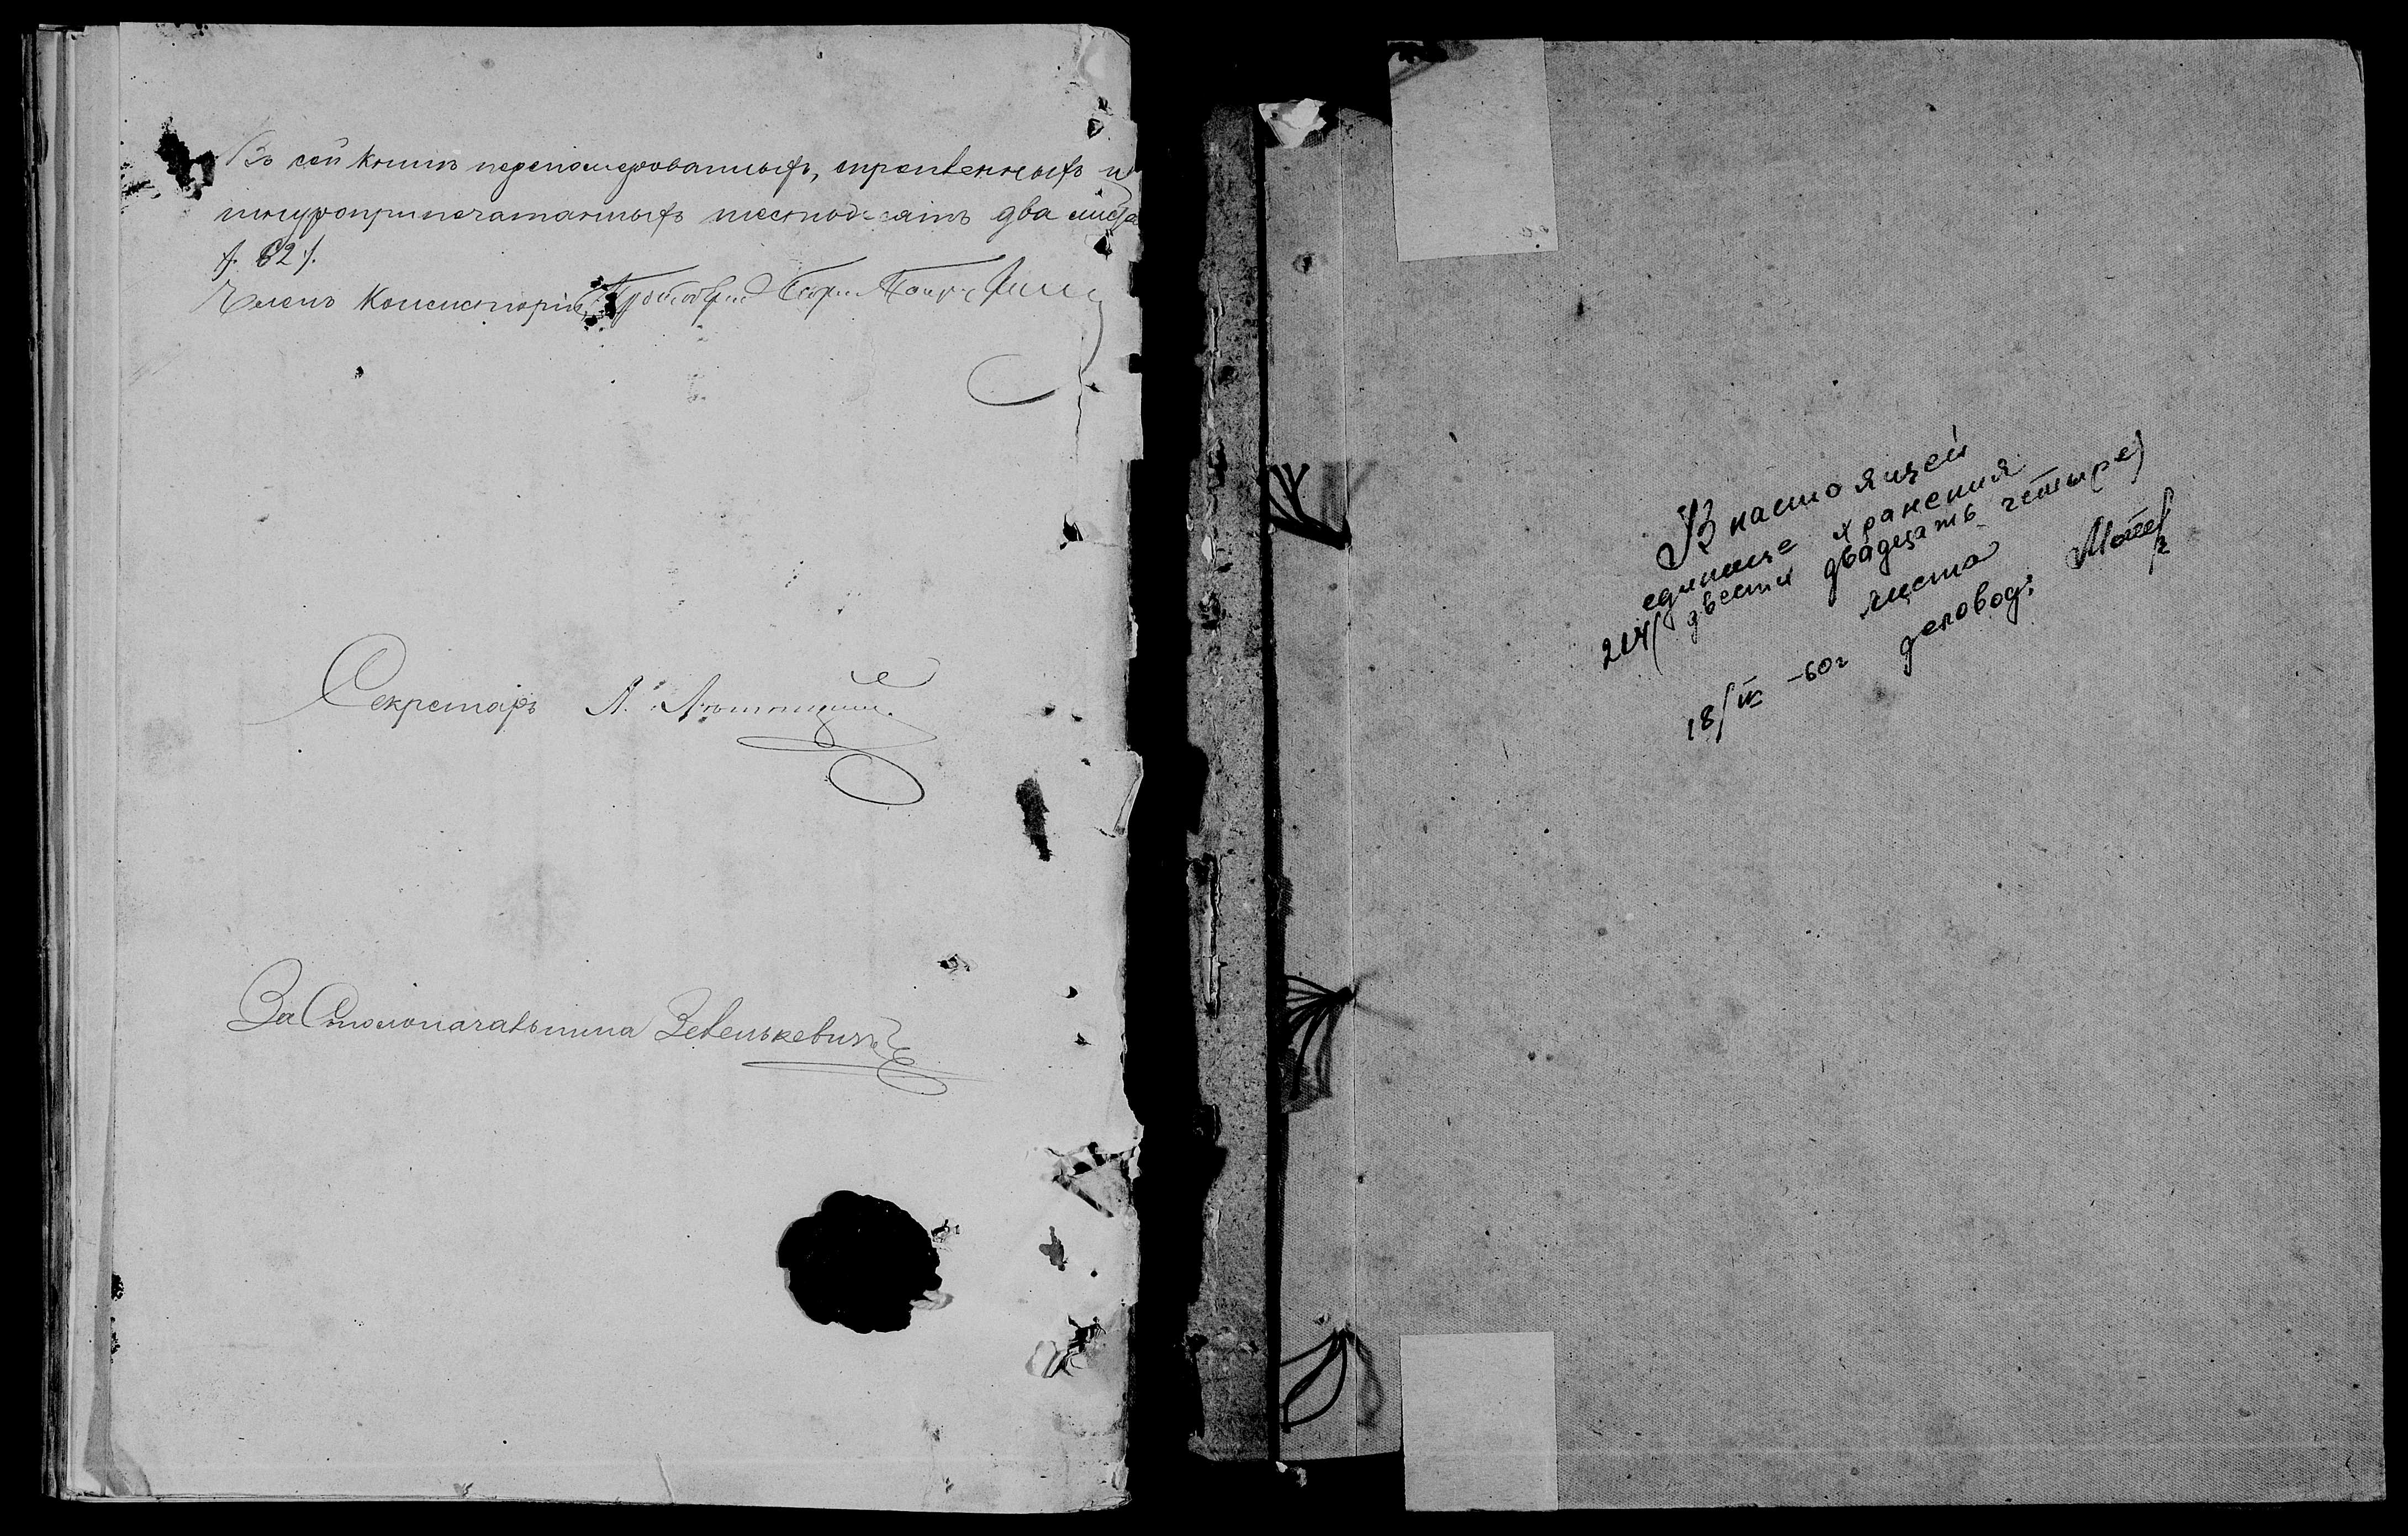 Въ сей книгѣ перенумерованныхъ, скрѣпленныхъ и
шнуроприпечатанныхъ шестьдесятъ два листа
/. 62 /.
Членъ Консисторіи Протоіерей
Секретарь Л.
За Столоначальника Зеленкевичъ
В настоящей
единице хранения
224 (двести двадцать четыре)
листа
18/IV -60г деловод: